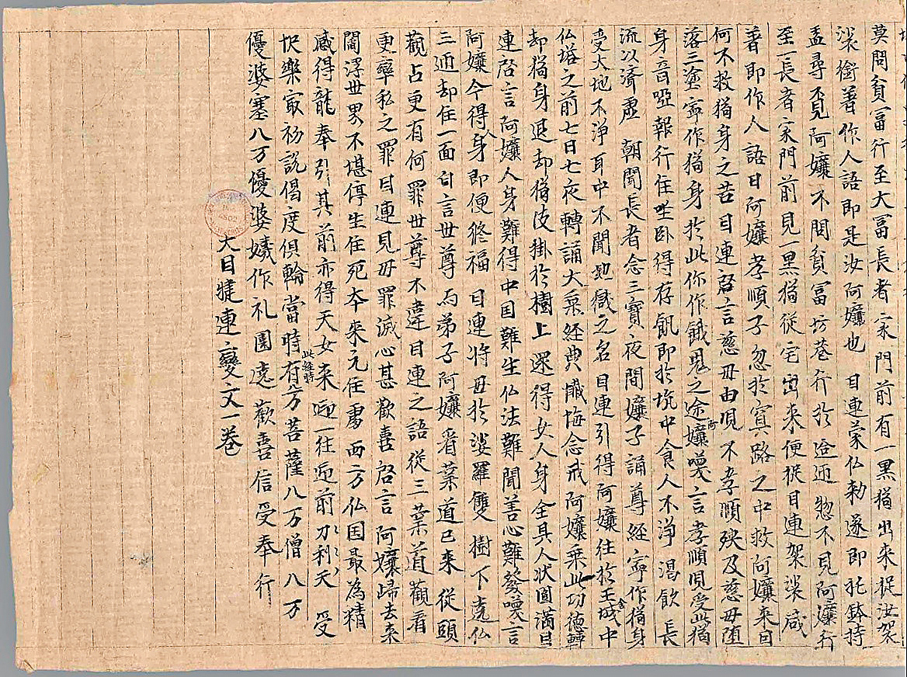 莫問貧富行至大富長者家門前有一黑猫出来捉汝袈
裟銜著作人語即是汝阿孃也 目連蒙仏勅遂即托鉢持
盂尋覓阿孃不問貧富坊巷行於迊迊惣不見阿孃行
至一長者家門前見一黑猫從宅出来便捉目連袈裟咸
著即作人語曰阿孃孝順子忽於冥路之中救阿孃来目
何不救猫身之苦目連啓言慈母由兒不孝順殃及慈母墮
落三塗寧作猫身於此你作餓鬼之途阿孃喚言孝順兒受此猫
身音啞報行住坐卧得存飢即於坑中食人不淨渴飲長
流以濟虛 朝聞長者念三寶夜聞孃子誦尊經寧作猫身
受大地不淨耳中不聞地獄之名目連引得阿孃往於王舍城中
仏塔之前七日七夜轉誦大乘經典懺悔念戒阿孃乘此功德轉
却猫身退却猫皮掛於樹上還得女人身全具人狀圓滿目
連啓言阿孃人身難得中国難生仏法難聞善心難發喚言
阿孃今得人身即便修福 目連將母於娑羅雙樹下遶仏
三迊却住一面白言世尊為弟子阿孃看業道已来從頭
觀占更有何罪世尊不違目連之語從三業道觀看
更率私之罪目連見母罪滅心甚歡喜啓言阿孃歸去来
閻浮世界不堪停生住死夲来元住處西方仏国最為精
感得龍奉引其前亦得天女来迎一往迎前刀利天 受
快樂最初說偈度俱輪當時此經時有万菩薩八万僧八万
優婆塞八万優婆姨作礼圍遶歡喜信受奉行
大目犍連變文一卷